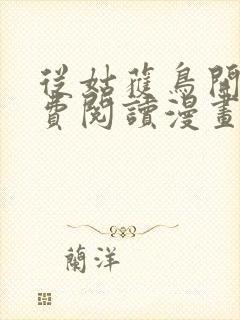 從姑蘿鳥開
費閱讀漫畫
蘭洋